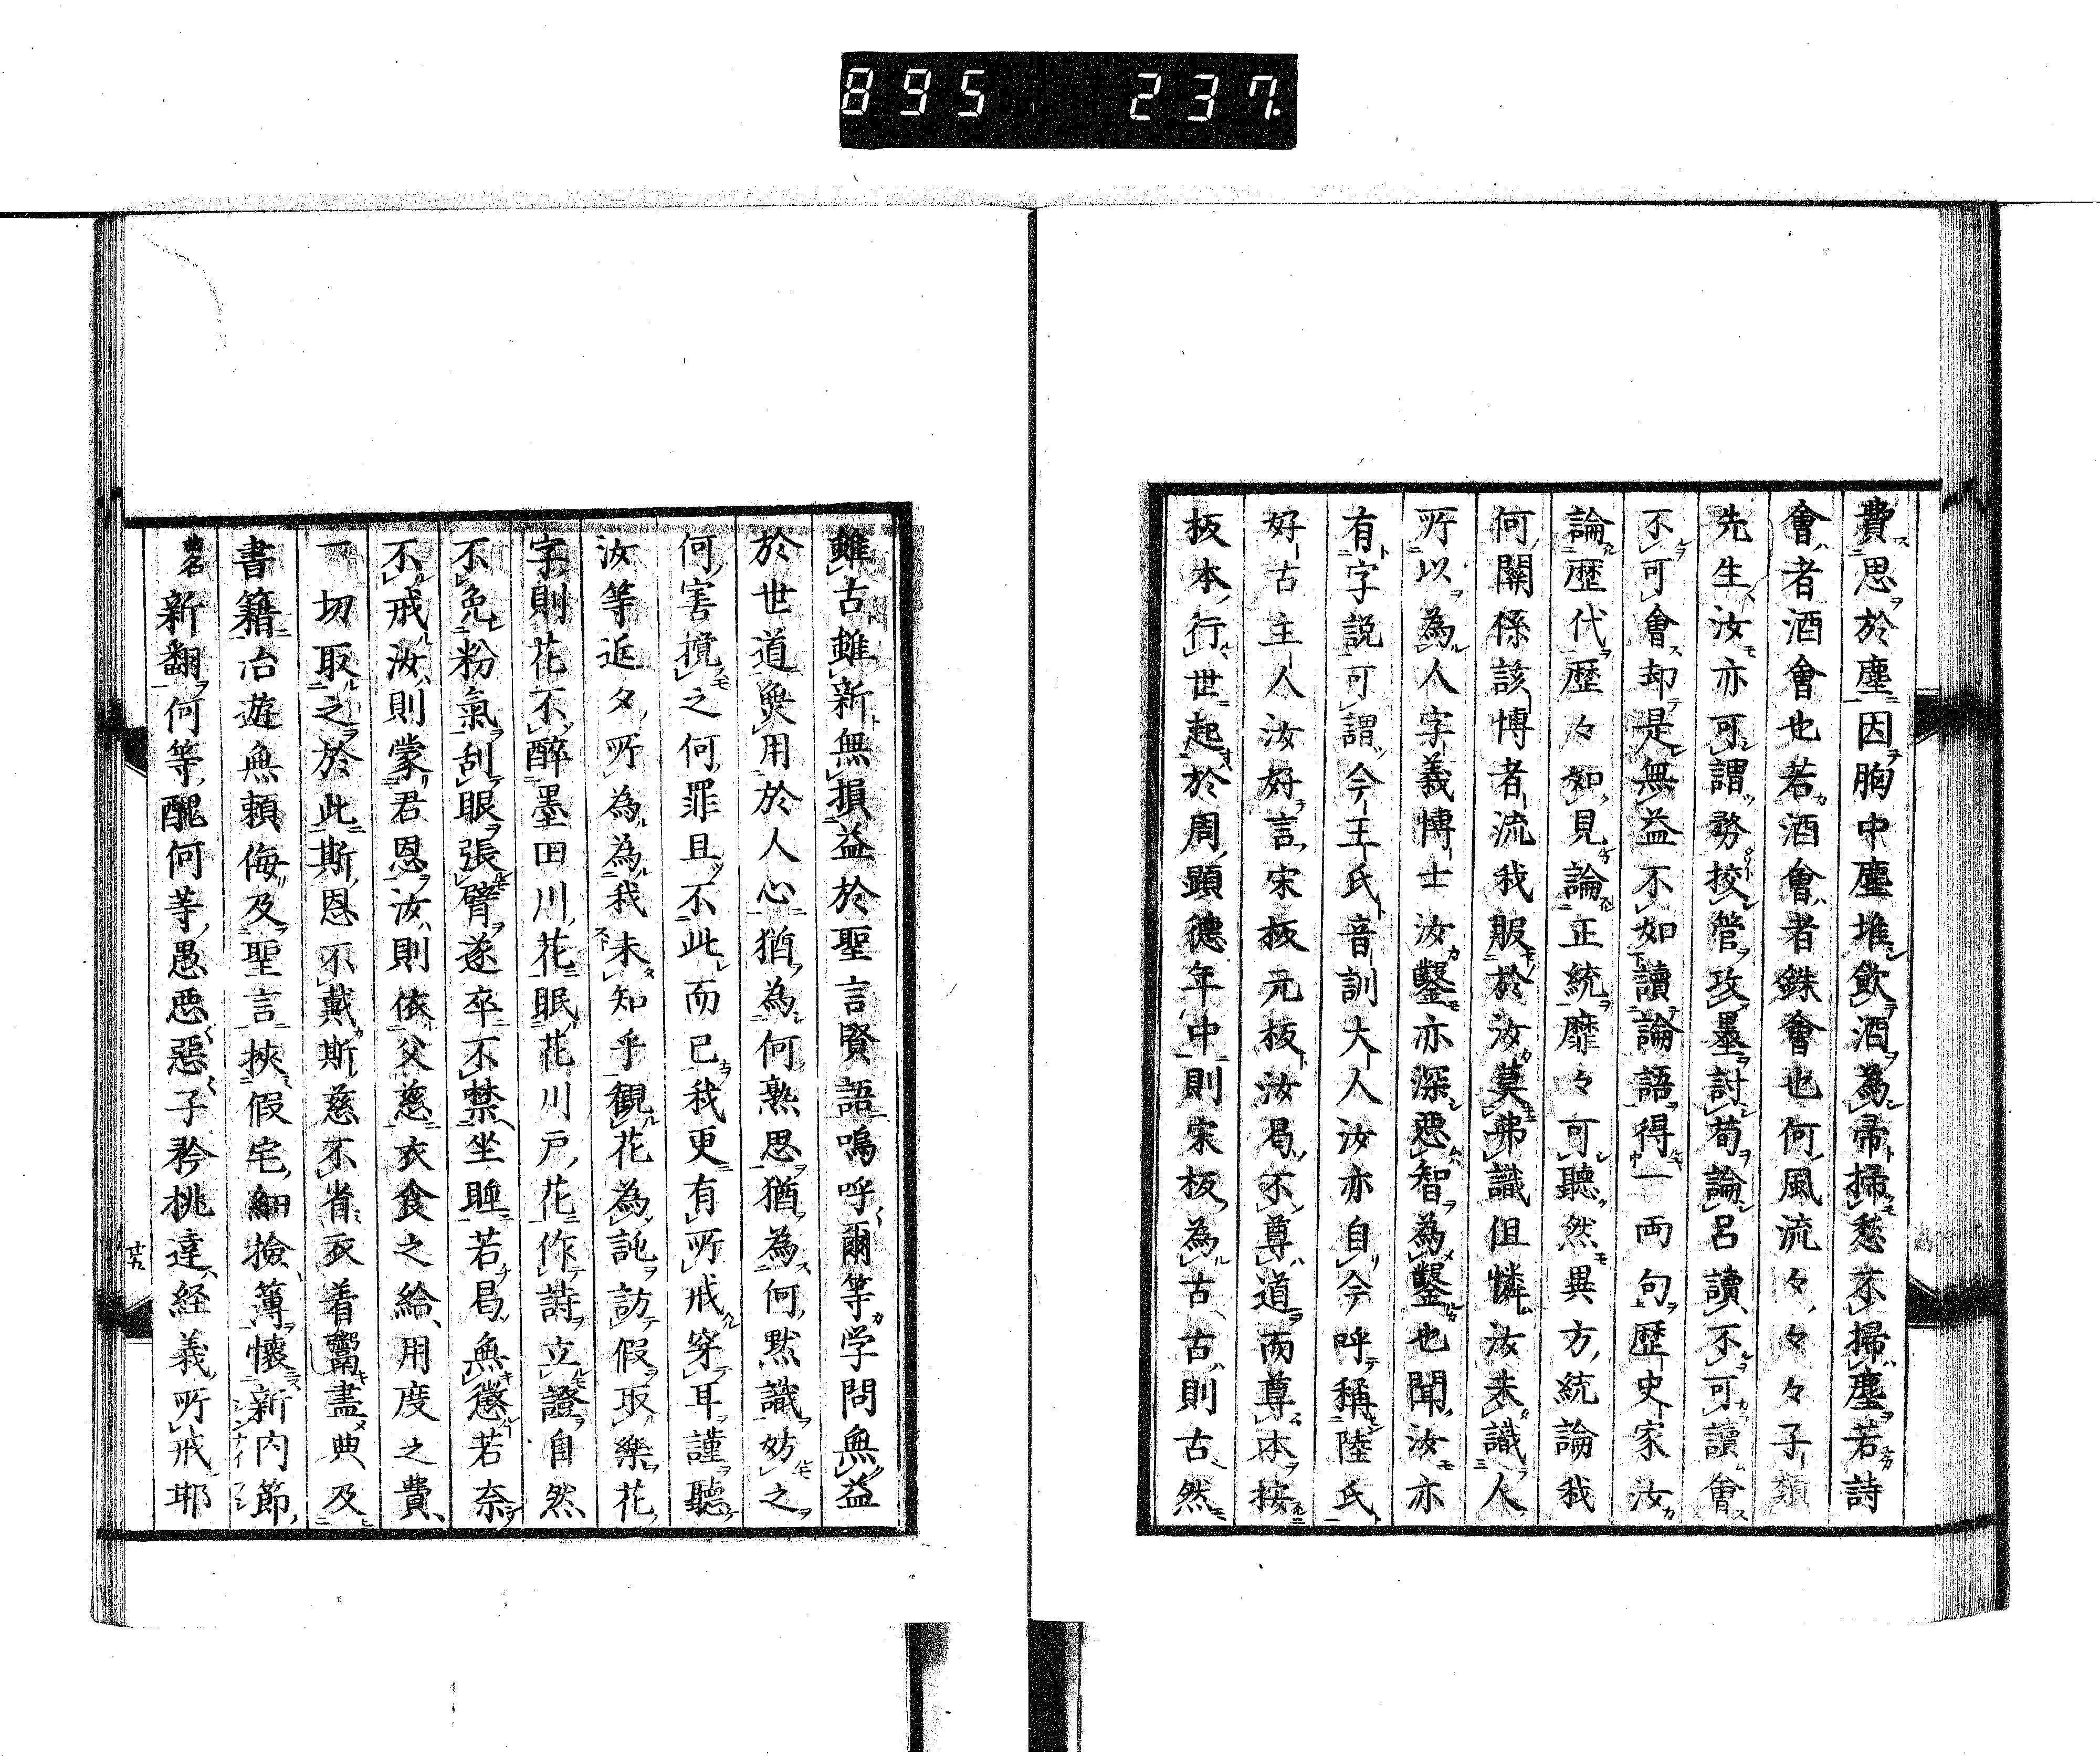 895 237.
費思於塵因胸中塵堆飲酒為帚掃愁不掃塵若詩
會者酒會也若酒會者銖會也何風流々々々子類
先生汝亦可謂務挍管攻墨討荀論呂讀不可讀會
不可會却是無益不如讀論語得一両句歴史家汝
論歴代歴々如見論正統靡々可聽然異方統論我
何關係該博者流我服於汝莫弗識但憐汝未識人
所以為人字義博士汝鑿亦深惡智為鑿也聞汝亦
有字説可謂今王氏音訓大人汝亦自今呼稱陸氏
好古主人汝好言宋板元板汝曷不尊道而尊本按
板本行世起於周顕德年中則宋板為古古則古然
雖古雖新無損益於聖言賢語嗚呼爾等学問無益
於世道無用於人心猶為何熟思猶為何黙識妨之
何害攪之何罪且不此而已我更有所戒穿耳謹聽
汝等近夕所為為我未知乎観花為訛訪假取樂花
字則花不醉墨田川花眠花川戸花作詩立證自然
不免粉氣刮眼張臂遂卒不禁坐睡若曷無懲若奈
不戒汝則蒙君恩汝則依父慈衣食之給用度之費
一切取之於此斯恩不戴斯慈不省衣着鬻盡典及
書籍冶遊無頼侮及聖言挾假宅細撿簿懷新内節
曲名 新翻何等醜何等愚惡惡子矜桃達経義所戒耶
廿九